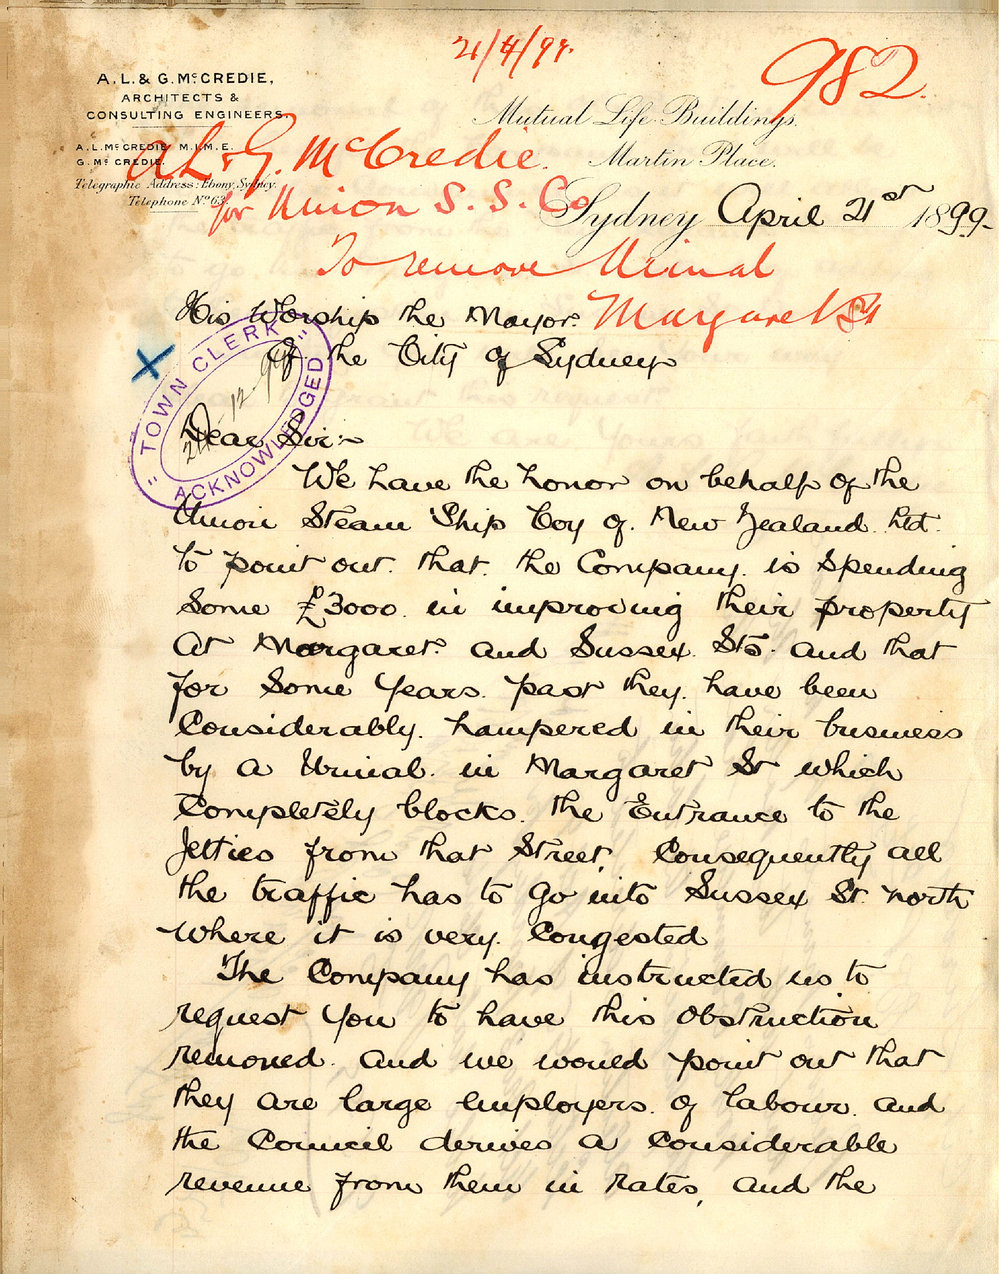 21/4/99.
982.
A.L. & G. McCREDIE,
ARCHITECTS &
CONSULTING ENGINEERS.
A.L. McCREDIE M.I.M.E.
G. Mc CREDIE.
Telegraphic Address: Ebony, Sydney.
Telephone No 63.
Mutual Life Buildings,
Martin Place,
Sydney April 21st 1899.
A L & G. McCredie.
for Union S. S. Co
To remove Urinal
Margaret St
His Worship the Mayor.
of the City of Sydney
"TOWN CLERK"
ACKNOWLEDGED
Dear Sir:-
We have the honor on behalf of the
Union Steam Ship Coy of. New Zealand. Ltd.
to point out. that. the Company. is spending
some £3000. in improving their property
at Margaret. and Sussex. Sts. and that
for some years. past they. have been
considerably. hampered in their business
by a Urinal. in Margaret St which
completely blocks. the Entrance to the
Jetties from that Street, Consequently all
the traffic has to go into Sussex St. north
where it is very. congested
The Company has instructed us to
request you to have this obstruction
removed. and we would point out that
they are large employers. of labour. and
the Council derives a considerable
revenue from them in rates, and the